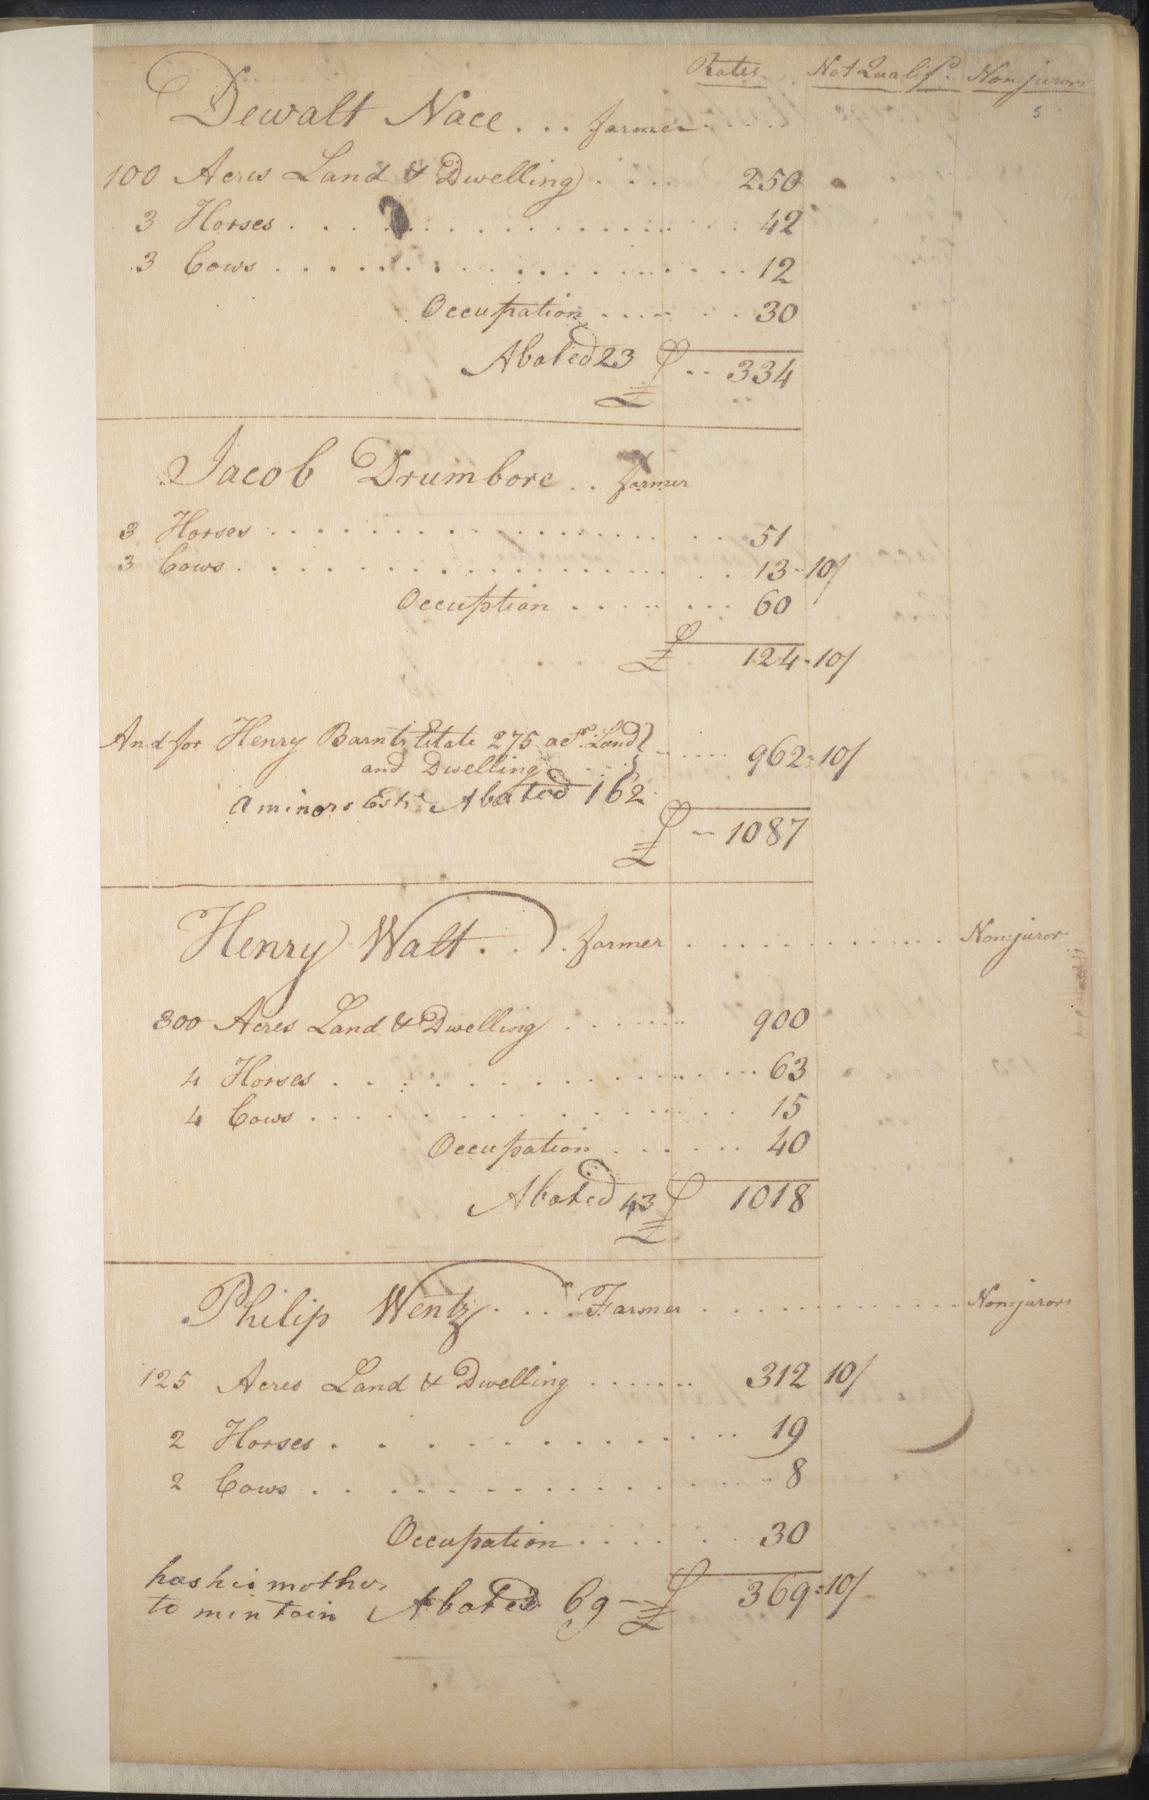 Rates Not Qualifd. Nonjurors
5
Dewalt Nace ... farmer ....
100 Acres Land & Dwelling .... 250
3 Horses ........ 42
3 Cows ........ 12
Occupation ...... 30
Abated 23 £ .. 334
Jacob Drumbore .. farmer
3 Horses ........ 51
3 Cows ........ 13-10/
Occuption ...... 60
£ 124-10/
And for Henry Barnts Estate 275 acrs. Land
and Dwelling .... 962:10/
a minors Este. Abated 162
£ -- 1087
Henry Walt ... farmer ........ Nonjuror
300 Acres Land & Dwelling ...... 900
4 Horses ........ 63
4 Cows ........ 15
Occupation ...... 40
Abated 43 £ 1018
Philip Wentz .... Farmer ........ Nonjuror
125 Acres Land & Dwelling ...... 312 10/
2 Horses ........ 19
2 Cows ........ 8
Occupation ...... 30
has his mother
to mintain Abated 69 - £ 369:10/